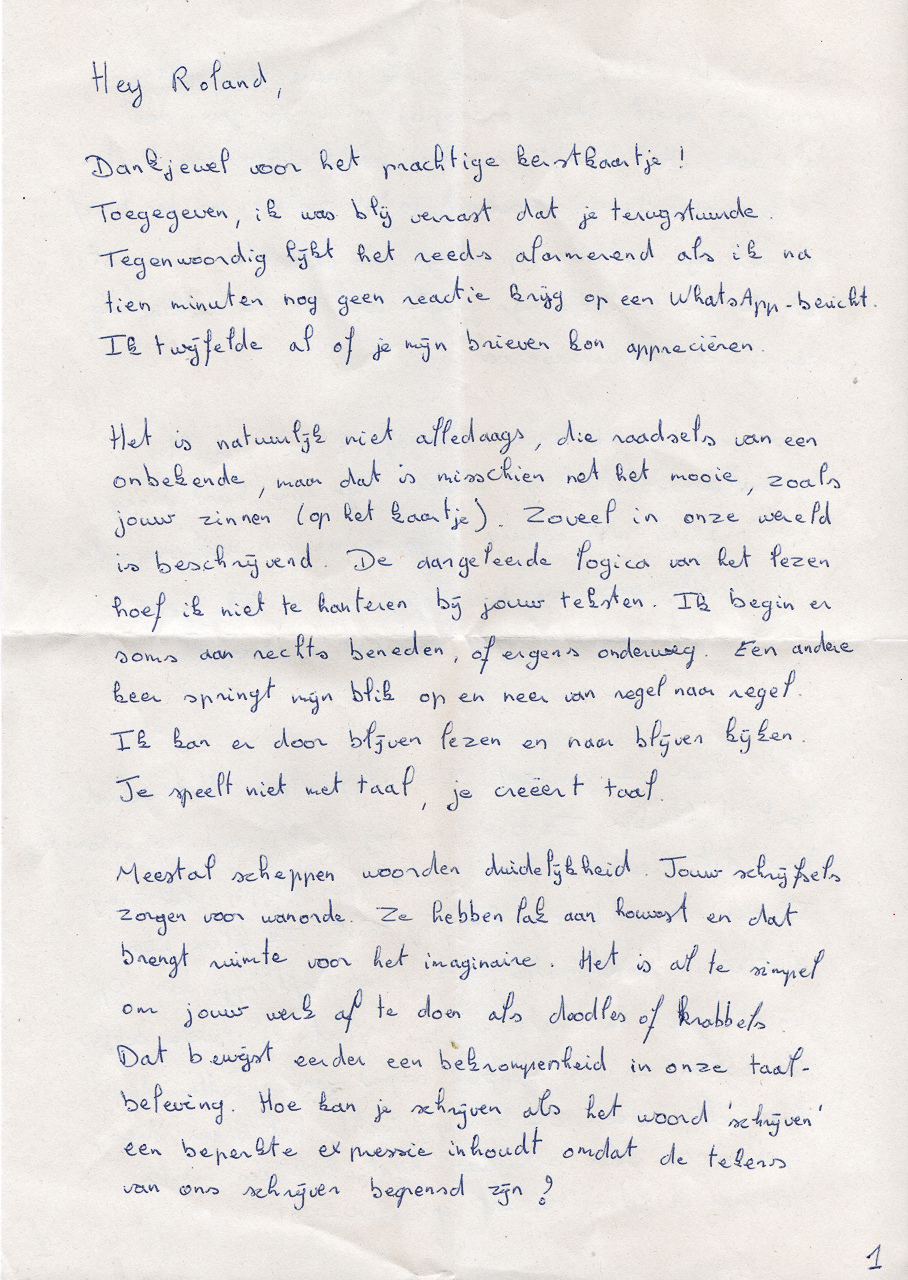 Hey Roland,
Dankjewel voor het prachtige kerstkaartje !
Toegegeven, ik was blij verrast dat je terugstuurde.
Tegenwoordig lijkt het reeds alarmerend als ik na
tien minuten nog geen reactie krijg op een WhatsApp-bericht.
Ik twijfelde al of je mijn brieven kon appreciëren.
Het is natuurlijk niet alledaags, die raadsels van een
onbekende, maar dat is misschien net het mooie, zoals
jouw zinnen (op het kaartje). Zoveel in onze wereld
is beschrijvend. De aangeleerde logica van het lezen
hoef ik niet te hanteren bij jouw teksten. Ik begin er
soms aan rechts beneden, of ergens onderweg. Een andere
keer springt mijn blik op en neer van regel naar regel.
Ik kan er door blijven lezen en naar blijven kijken.
Je speelt niet met taal, je creëert taal.
Meestal scheppen woorden duidelijkheid. Jouw schrijfsels
zorgen voor wanorde. Ze hebben lak aan houvast en dat
brengt ruimte voor het imaginaire. Het is al te simpel
om jouw werk af te doen als doodles of krabbels.
Dat bewijst eerder een bekrompenheid in onze taal-
beleving. Hoe kan je schrijven als het woord 'schrijven'
een beperkte expressie inhoudt omdat de tekens
van ons schrijven begrensd zijn ?
1